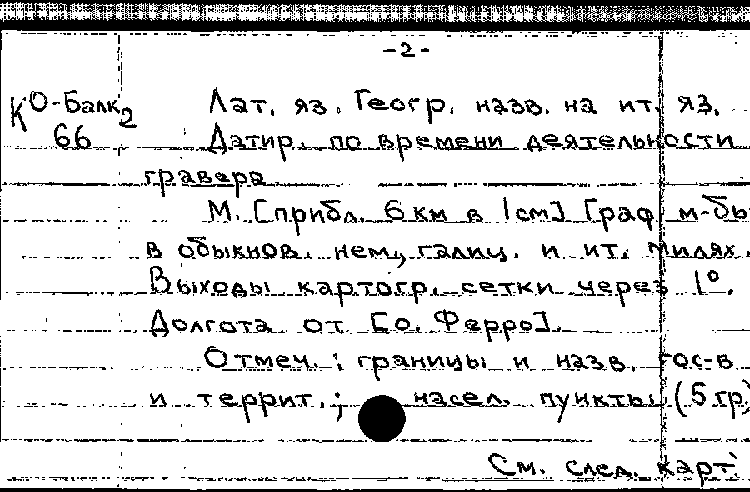 -2-
К О-Балк 2 Лат. яз. Геогр. назв. на ит. яз.
66 Датир. по времени деятельности
гравера
М. [прибл. 6 км в 1 см] Граф. м-бы
в обыкнов. нем., галиц. и ит. милях.
Выходы картогр. сетки через 1°.
Долгота от [о. Ферро].
Отмеч.: границы и назв. гос-в
и террит.; насел. пункты (5 гр)
См. след. карт.